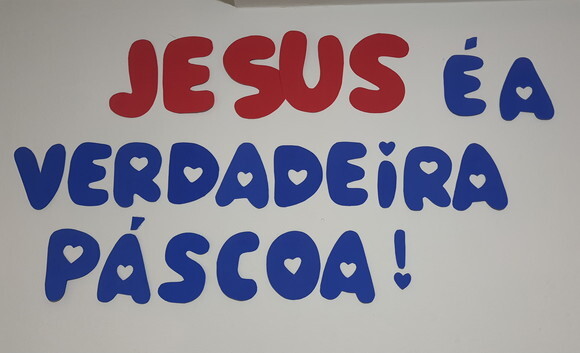 JESUS É A
VERDADEIRA
PÁSCOA!